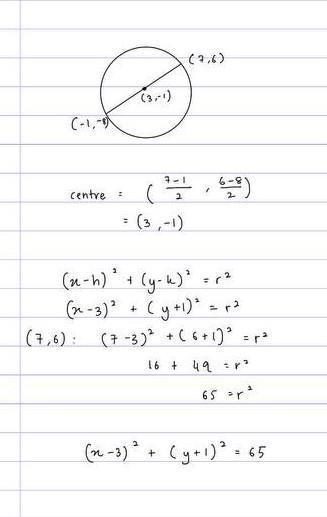 (7,6)
(3,-1)
(-1,-8)
centre = ( 7-1/2 , 6-8/2 )
= (3,-1)
(x-h)² + (y-k)² = r²
(x-3)² + (y+1)² = r²
(7,6): (7-3)² + (6+1)² = r²
16 + 49 = r²
65 = r²
(x-3)² + (y+1)² = 65